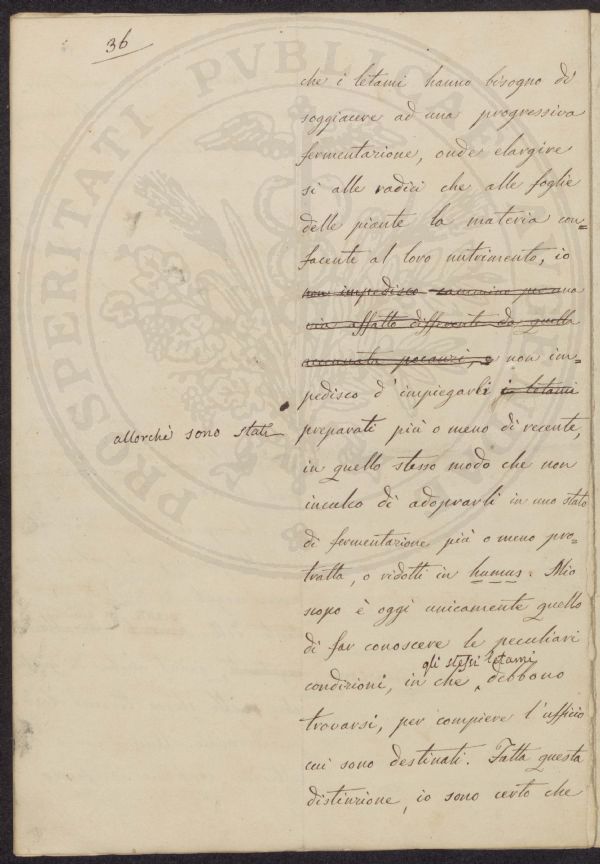 36
che i letami hanno bisogno di
soggiacere ad una progressiva
fermentazione, onde elargire
si alle radici che alle foglie
delle piante la materia con=
facente al loro nutrimento, io
non impedisco cammino per una
via affatto differente da quella
accennata pocanzi, e non im=
pedisco d'impiegarli i letami
allorchè sono stati
preparati più o meno di recente,
in quello stesso modo che non
inculco di adoprarli in uno stato
di fermentazione più o meno pro=
tratta, o ridotti in humus. Mio
scopo è oggi unicamente quello
di far conoscere le peculiari
gli stessi letami
condizioni, in che debbono
trovarsi, per compiere l'ufficio
cui sono destinati. Fatta questa
distinzione, io sono certo che
PROSPERITATI PVBLICAE